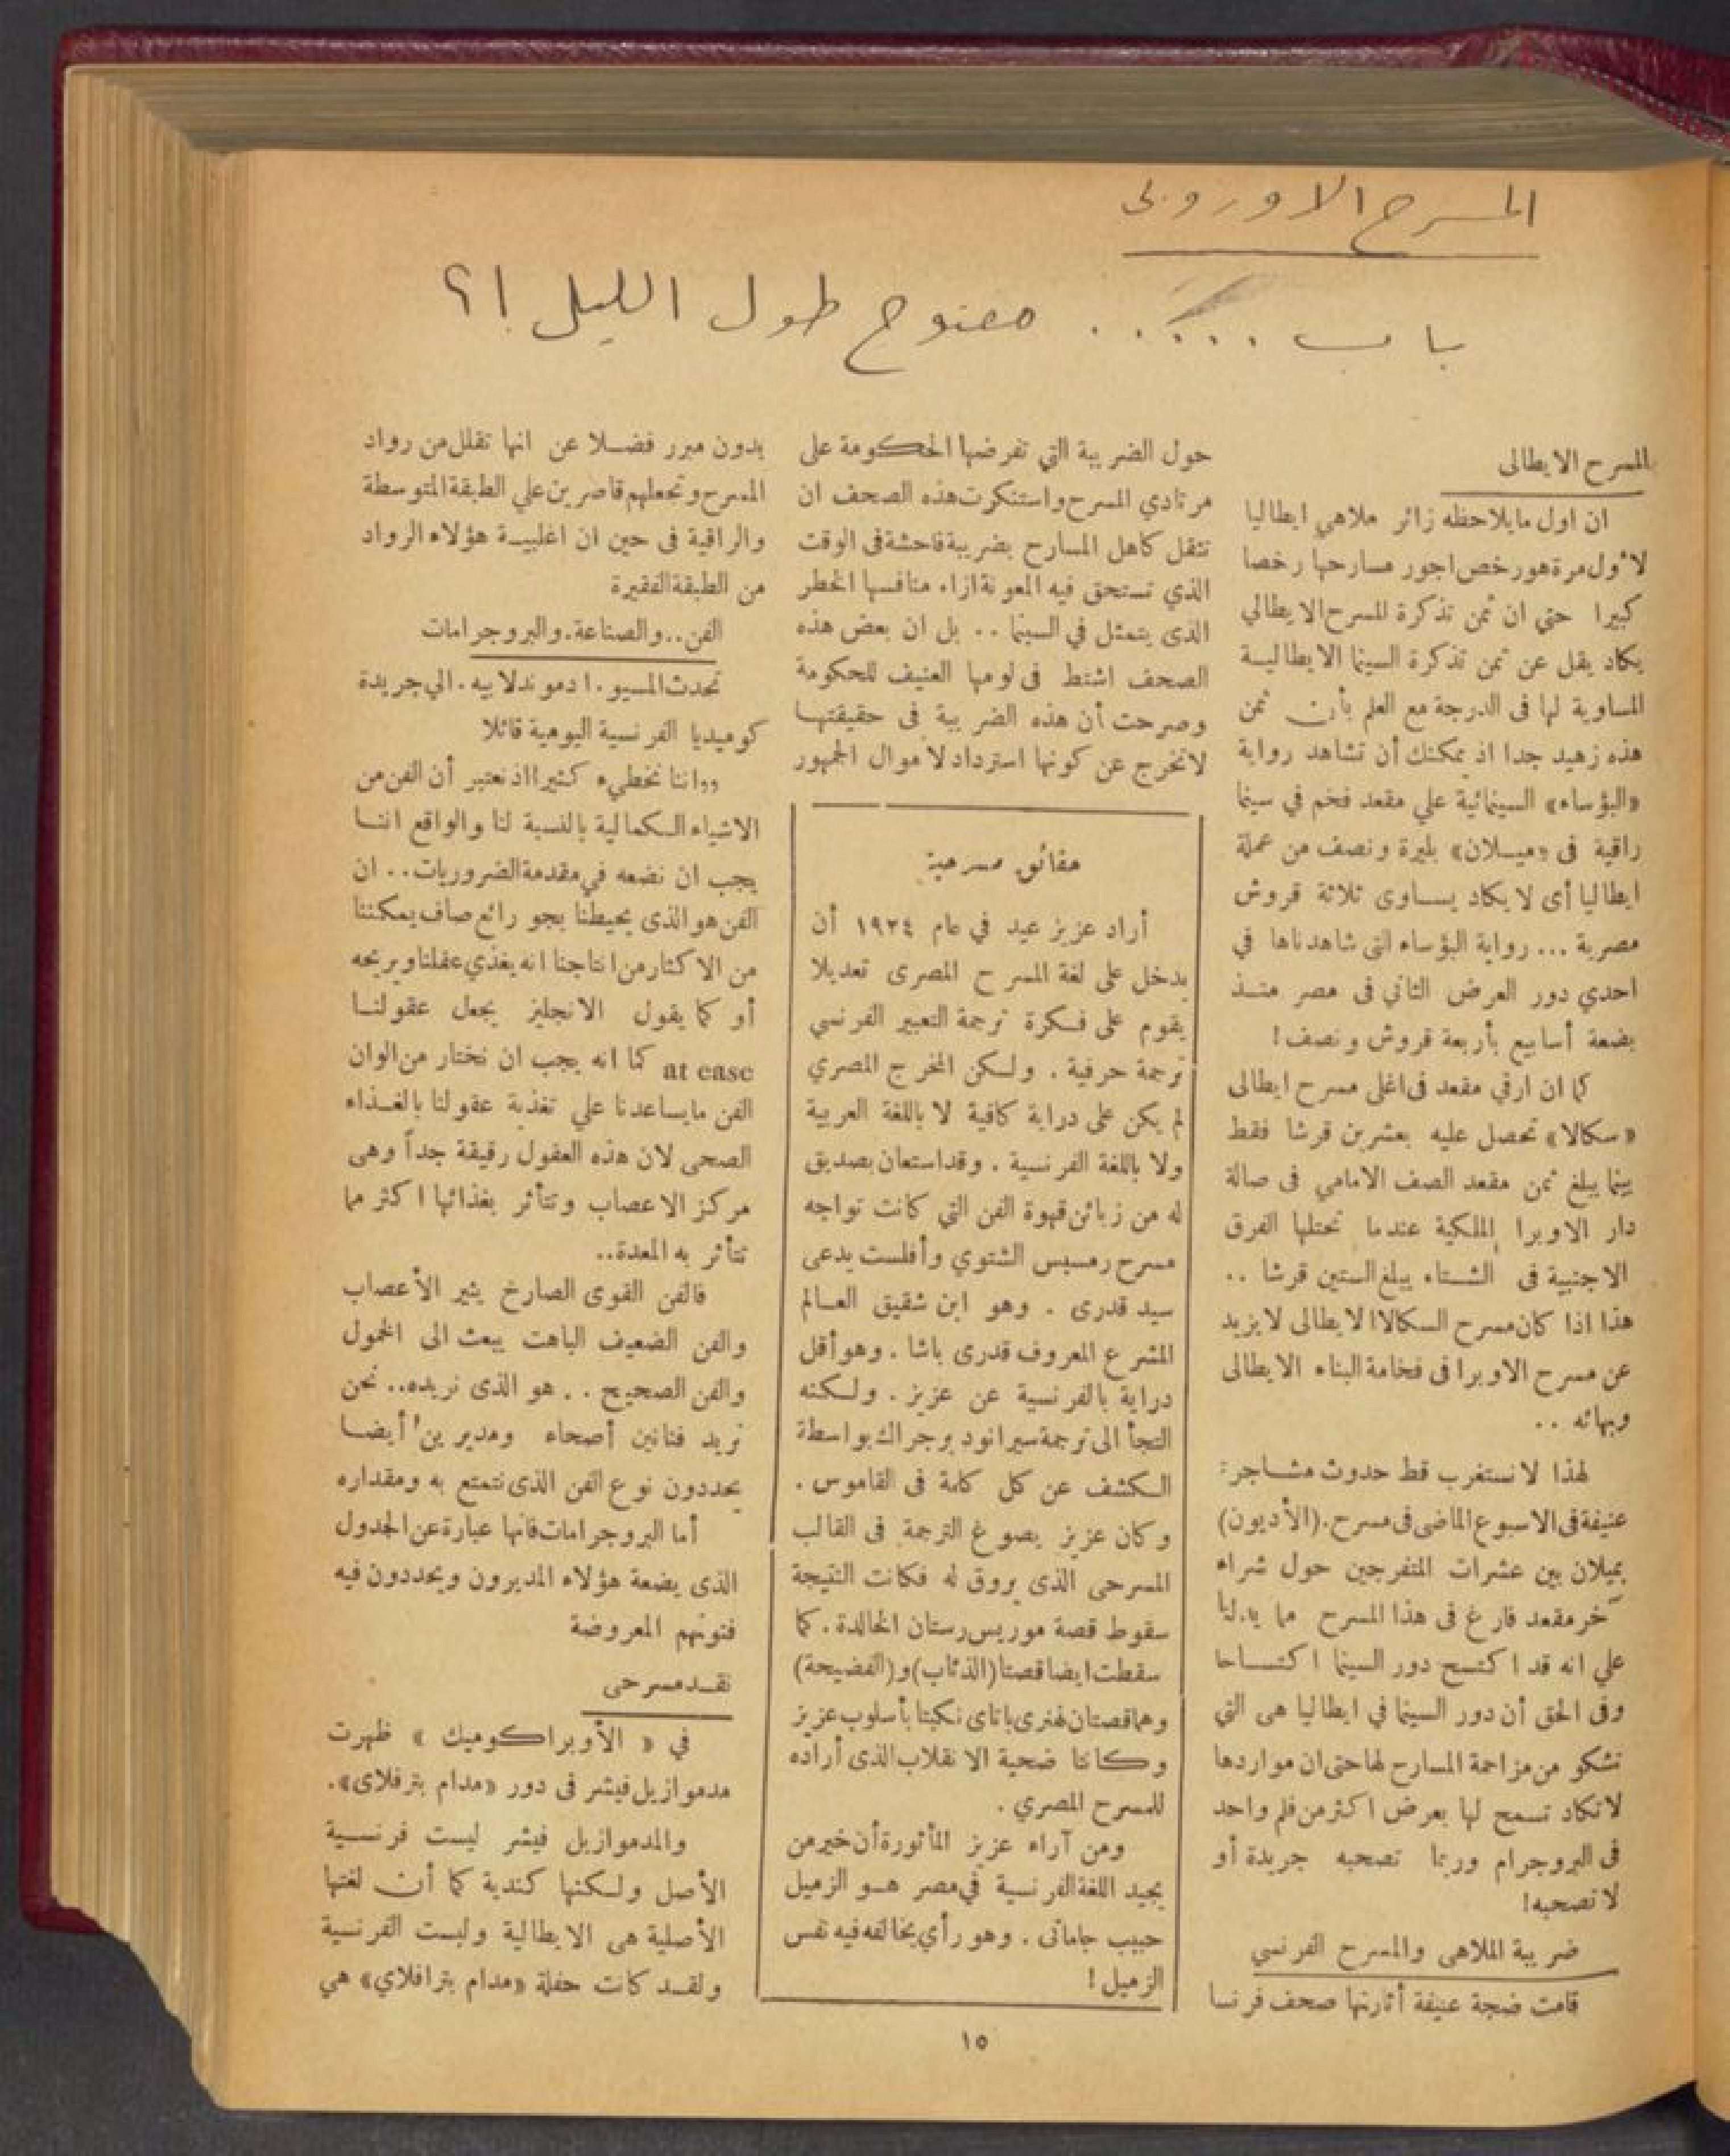 المسرح الاوروبى
باب . . . . . . مفتوح طول الليل !؟
المسرح الايطالى
ان اول مايلاحظه زائر ملاهي ايطاليا
لأول مرة هو رخص اجور مسارحها رخصا
كبيرا حتي ان ثمن تذكرة المسرح الايطالي
يكاد يقل عن ثمن تذكرة السينما الايطاليـة
المساوية لها فى الدرجة مع العلم بأن ثمن
هذه زهيد جدا اذ يمكنك أن تشاهد رواية
«البؤساء» السينمائية علي مقعد فخم في سينما
راقية فى «ميـلان» بليرة ونصف من عملة
ايطاليا أى لا يكاد يسـاوى ثلاثة قروش
مصرية ... رواية البؤساء التى شاهدناها في
احدي دور العرض الثاني فى مصر منـذ
بضعة أسابيع بأربعة قروش ونصف !
كما ان ارقي مقعد فى اغلى مسرح ايطالى
«سكالا» تحصل عليه بعشرين قرشا فقط
بينما يبلغ ثمن مقعد الصف الامامي فى صالة
دار الاوبرا الملكية عندما تحتلها الفرق
الاجنبية فى الشـتاء يبلغ الستين قرشا ..
هذا اذا كان مسرح السكالا الايطالى لا يزيد
عن مسرح الاوبرا فى فخامة البناء الايطالى
وبهائه ..
لهذا لا نستغرب قط حدوث مشـاجرة
عنيفة فى الاسبوع الماضى فى مسرح.(الأديون)
بميلان بين عشرات المتفرجين حول شراء
آخر مقعد فارغ فى هذا المسرح مما يدلنا
علي انه قد اكتسح دور السينما اكتسـاحا
وفى الحق أن دور السينما في ايطاليا هى التي
تشكو من مزاحمة المسارح لها حتى ان مواردها
لا تكاد تسمح لها بعرض اكثر من فلم واحد
فى البروجرام وربما تصحبه جريدة أو
لا تصحبه !
ضريبة الملاهى والمسرح الفرنسي
قامت ضجة عنيفة أثارتها صحف فرنسا
حول الضريبة التي تفرضها الحكومة على
مرتادي المسرح واستنكرت هذه الصحف ان
تثقل كاهل المسارح بضريبة فاحشة فى الوقت
الذي تستحق فيه المعونة ازاء منافسها الخطر
الذى يتمثل في السينما .. بل ان بعض هذه
الصحف اشتط فى لومها العنيف للحكومة
وصرحت أن هذه الضريبة فى حقيقتهـا
لا تخرج عن كونها استرداد لاموال الجمهور
حقائق مسرحية
أراد عزيز عيد في عام ١٩٢٤ أن
يدخل على لغة المسرح المصرى تعديلا
يقوم على فـكرة ترجمة التعبير الفرنسي
ترجمة حرفية . ولـكن المخرج المصري
لم يكن على دراية كافية لا باللغة العربية
ولا باللغة الفرنسية . وقد استعان بصديق
له من زبائن قهوة الفن التي كانت تواجه
مسرح رمسيس الشتوي وأفلست يدعى
سيد قدرى . وهو ابن شقيق العـالم
المشرع المعروف قدرى باشا . وهو أقل
دراية بالفرنسية عن عزيز . ولـكنه
التجأ الى ترجمة سيرانود برجراك بواسطة
الـكشف عن كل كلمة فى القاموس .
وكان عزيز يصوغ الترجمة فى القالب
المسرحى الذى يروق له فكانت النتيجة
سقوط قصة موريس رستان الخالدة . كما
سقطت ايضا قصتا (الذئاب) و (الفضيحة)
وهما قصتان لهنرى باتاى نكبتا بأسلوب عزيز
وكانتا ضحية الانقلاب الذى أراده
للمسرح المصري .
ومن آراء عزيز المأثورة أن خير من
يجيد اللغة الفرنسية في مصر هـو الزميل
حبيب جاماتى . وهو رأي يخالفه فيه نفس
الزميل !
بدون مبرر فضـلا عن انها تقلل من رواد
المسرح وتجعلهم قاصرين علي الطبقة المتوسطة
والراقية فى حين ان اغلبيـة هؤلاء الرواد
من الطبقة الفقيرة
الفن .. والصناعة . والبروجرامات
تحدث المسيو . ادموند لابيه . الي جريدة
كوميديا الفرنسية اليومية قائلا
«اننا نخطيء كثيرا اذ نعتبر أن الفن من
الاشياء الـكمالية بالنسبة لنا والواقع اننـا
يجب ان نضعه في مقدمة الضروريات .. ان
الفن هو الذى يحيطنا بجو رائع صاف يمكننا
من الاكثار من انتاجنا انه يغذي عقلنا ويريحه
أو كما يقول الانجليز يجعل عقولنـا
at ease كما انه يجب ان نختار من الوان
الفن مايساعدنا علي تغذية عقولنا بالغـذاء
الصحى لان هذه العقول رقيقة جداً وهى
مركز الاعصاب وتتأثر بغذائها اكثر مما
تتأثر به المعدة ..
فالفن القوى الصارخ يثير الأعصاب
والفن الضعيف الباهت يبعث الى الخمول
والفن الصحيح .. هو الذى نريده .. نحن
نريد فنانين أصحاء ومديرين أيضـا
يحددون نوع الفن الذى نتمتع به ومقداره
أما البروجرامات فانها عبارة عن الجدول
الذى يضعة هؤلاء المديرون ويحددون فيه
فنونهم المعروضة
نقـد مسرحى
في « الأوبراكوميك » ظهرت
مدموازيل فيشر فى دور «مدام بترفلاى» .
والمدموازيل فيشر ليست فرنسـية
الأصل ولـكنها كندية كما أن لغتها
الأصلية هى الايطالية وليست الفرنسية
ولقـد كانت حفلة «مدام بترافلاي» هي
١٥